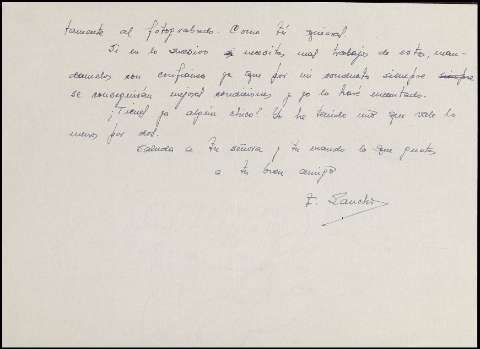 tamente al fotograbado. Como tú quieras.
Si en lo sucesivo necesitas más trabajos de estos, mán-
damelos con confianza ya que por mi conducto siempre
se conseguirán mejores condiciones y yo lo haré encantado.
¡Tienes ya algún chico! Yo he tenido uno que vale lo
menos por dos.
Saluda a tu señora y tu manda lo que gustes
a tu buen amigo
F. Sancho